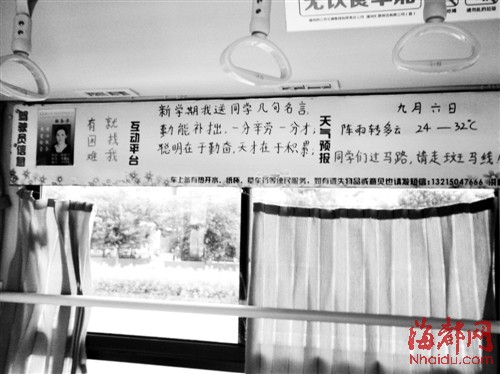 无饮食车厢
驾驶员信息
有困难
就找我
互动平台
新学期我送同学几句名言
勤能补拙,一分辛劳一分才,
聪明在于勤奋,天才在于积累
天气预报
九月六日
阵雨转多云 24—32℃
同学们过马路,请走斑马线
车上备有热开水,纸杯,垃圾袋等便民服务,如有遗失物品或意见也请发短信:13215047666
海都网
Nhaidu.com